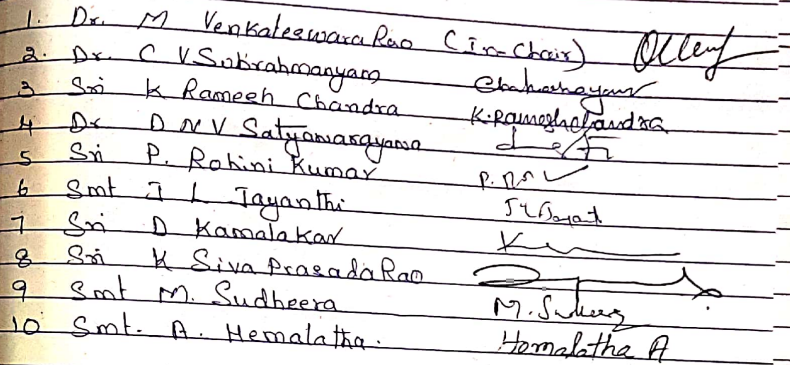 1. Dr. M Venkateswara Rao (in-Chair)
2. Dr. C V Subrahmanyam
3 Sri K Ramesh Chandra K.Rameshchandra
4 Dr D N V Satyanarayana
5 Sri P. Rohini Kumar
6 Smt J L Jayanthi
7 Sri D Kamalakar
8 Sri K Siva Prasada Rao
9 Smt M. Sudheera M. Sudheer
10 Smt. A. Hemalatha. Hemalatha A